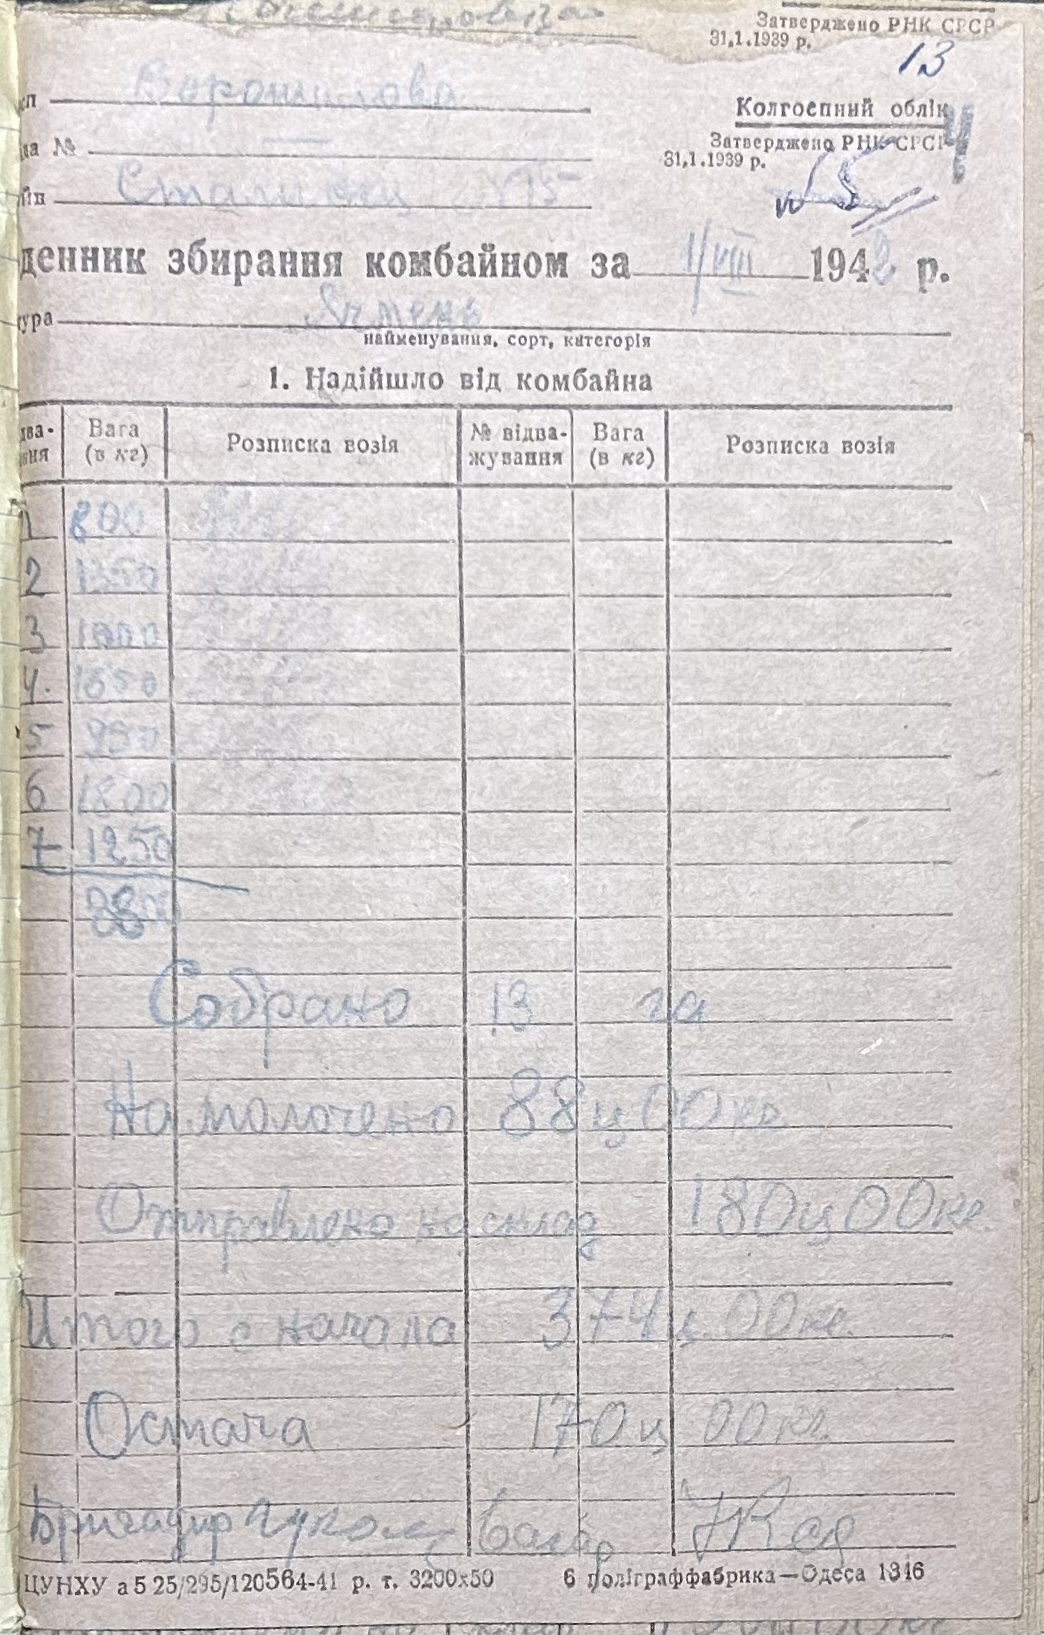 Затверджено РНК СРСР
31.1.1939 р.
13
сп Ворошилова
Колгоспний облік
4
да № —
Затверджено РНК СРСР
31,1.1939 р.
йн Сталинец №15
№ 5
денник збирання комбайном за 1/VIII 1942 р.
ура Ячмень
найменування, сорт, категорія
1. Надійшло від комбайна
два- Вага Розписка возія № відва- Вага Розписка возія
ння (в кг) жування (в кг)
1 800
2 1350
3 1000
4. 1650
5 950
6 1800
7 1250
8800
Собрано 13 га
Намолочено 88ц 00кг
Отправлено на склад 180ц 00кг.
Итого с начала 374ц. 00кг.
Остача 170ц 00кг.
Бригадир Вагар
ЦУНХУ а 5 25/295/120564-41 р. т. 3200x50 6 поліграффабрика—Одеса 1346